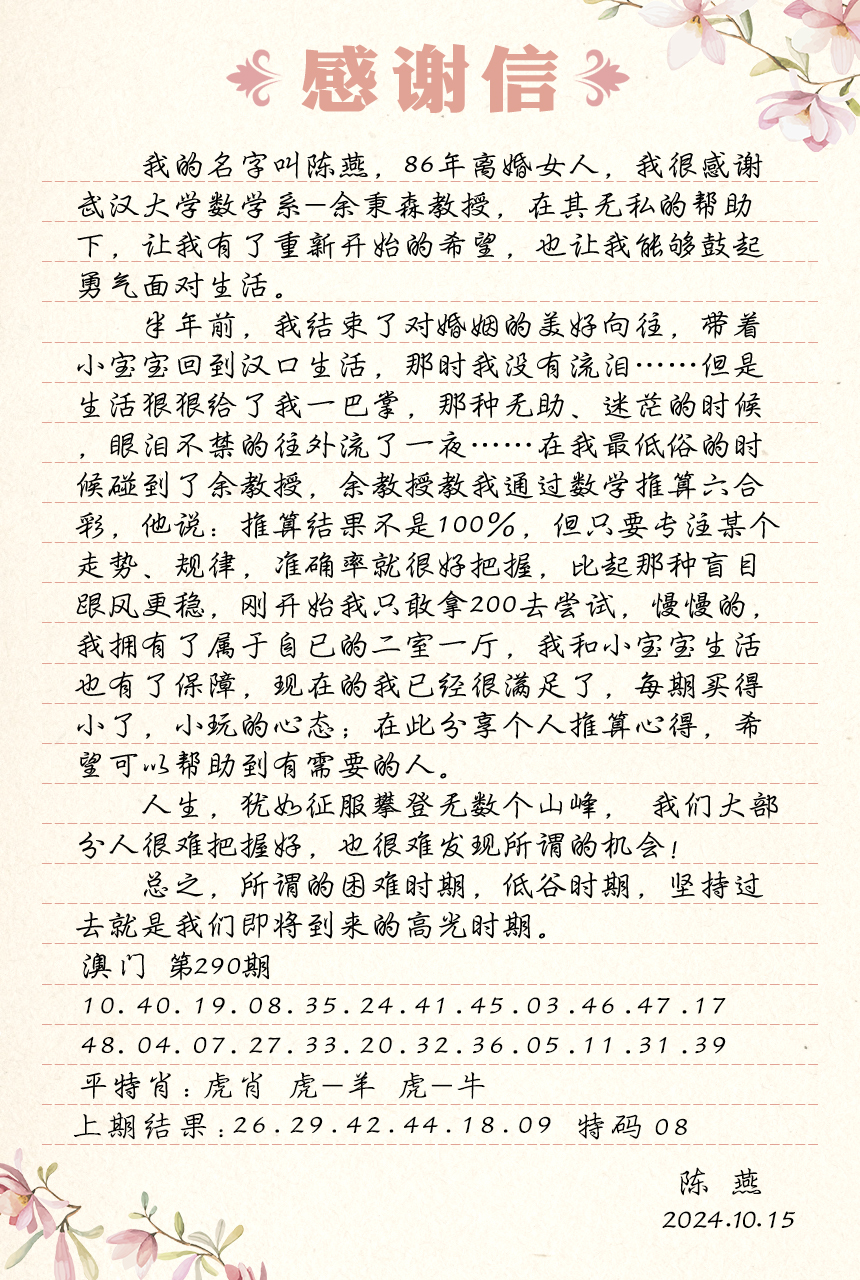 感谢信
我的名字叫陈燕，86年离婚女人，我很感谢
武汉大学数学系—余秉森教授，在其无私的帮助
下，让我有了重新开始的希望，也让我能够鼓起
勇气面对生活。
半年前，我结束了对婚姻的美好向往，带着
小宝宝回到汉口生活，那时我没有流泪……但是
生活狠狠给了我一巴掌，那种无助、迷茫的时候
，眼泪不禁的往外流了一夜……在我最低俗的时
候碰到了余教授，余教授教我通过数学推算六合
彩，他说：推算结果不是100%，但只要专注某个
走势、规律，准确率就很好把握，比起那种盲目
跟风更稳，刚开始我只敢拿200去尝试，慢慢的，
我拥有了属于自已的二室一厅，我和小宝宝生活
也有了保障，现在的我已经很满足了，每期买得
小了，小玩的心态；在此分享个人推算心得，希
望可以帮助到有需要的人。
人生，犹如征服攀登无数个山峰， 我们大部
分人很难把握好，也很难发现所谓的机会！
总之，所谓的困难时期，低谷时期，坚持过
去就是我们即将到来的高光时期。
澳门 第290期
10.40.19.08.35.24.41.45.03.46.47.17
48.04.07.27.33.20.32.36.05.11.31.39
平特肖：虎肖 虎—羊 虎—牛
上期结果：26.29.42.44.18.09 特码 08
陈 燕
2024.10.15